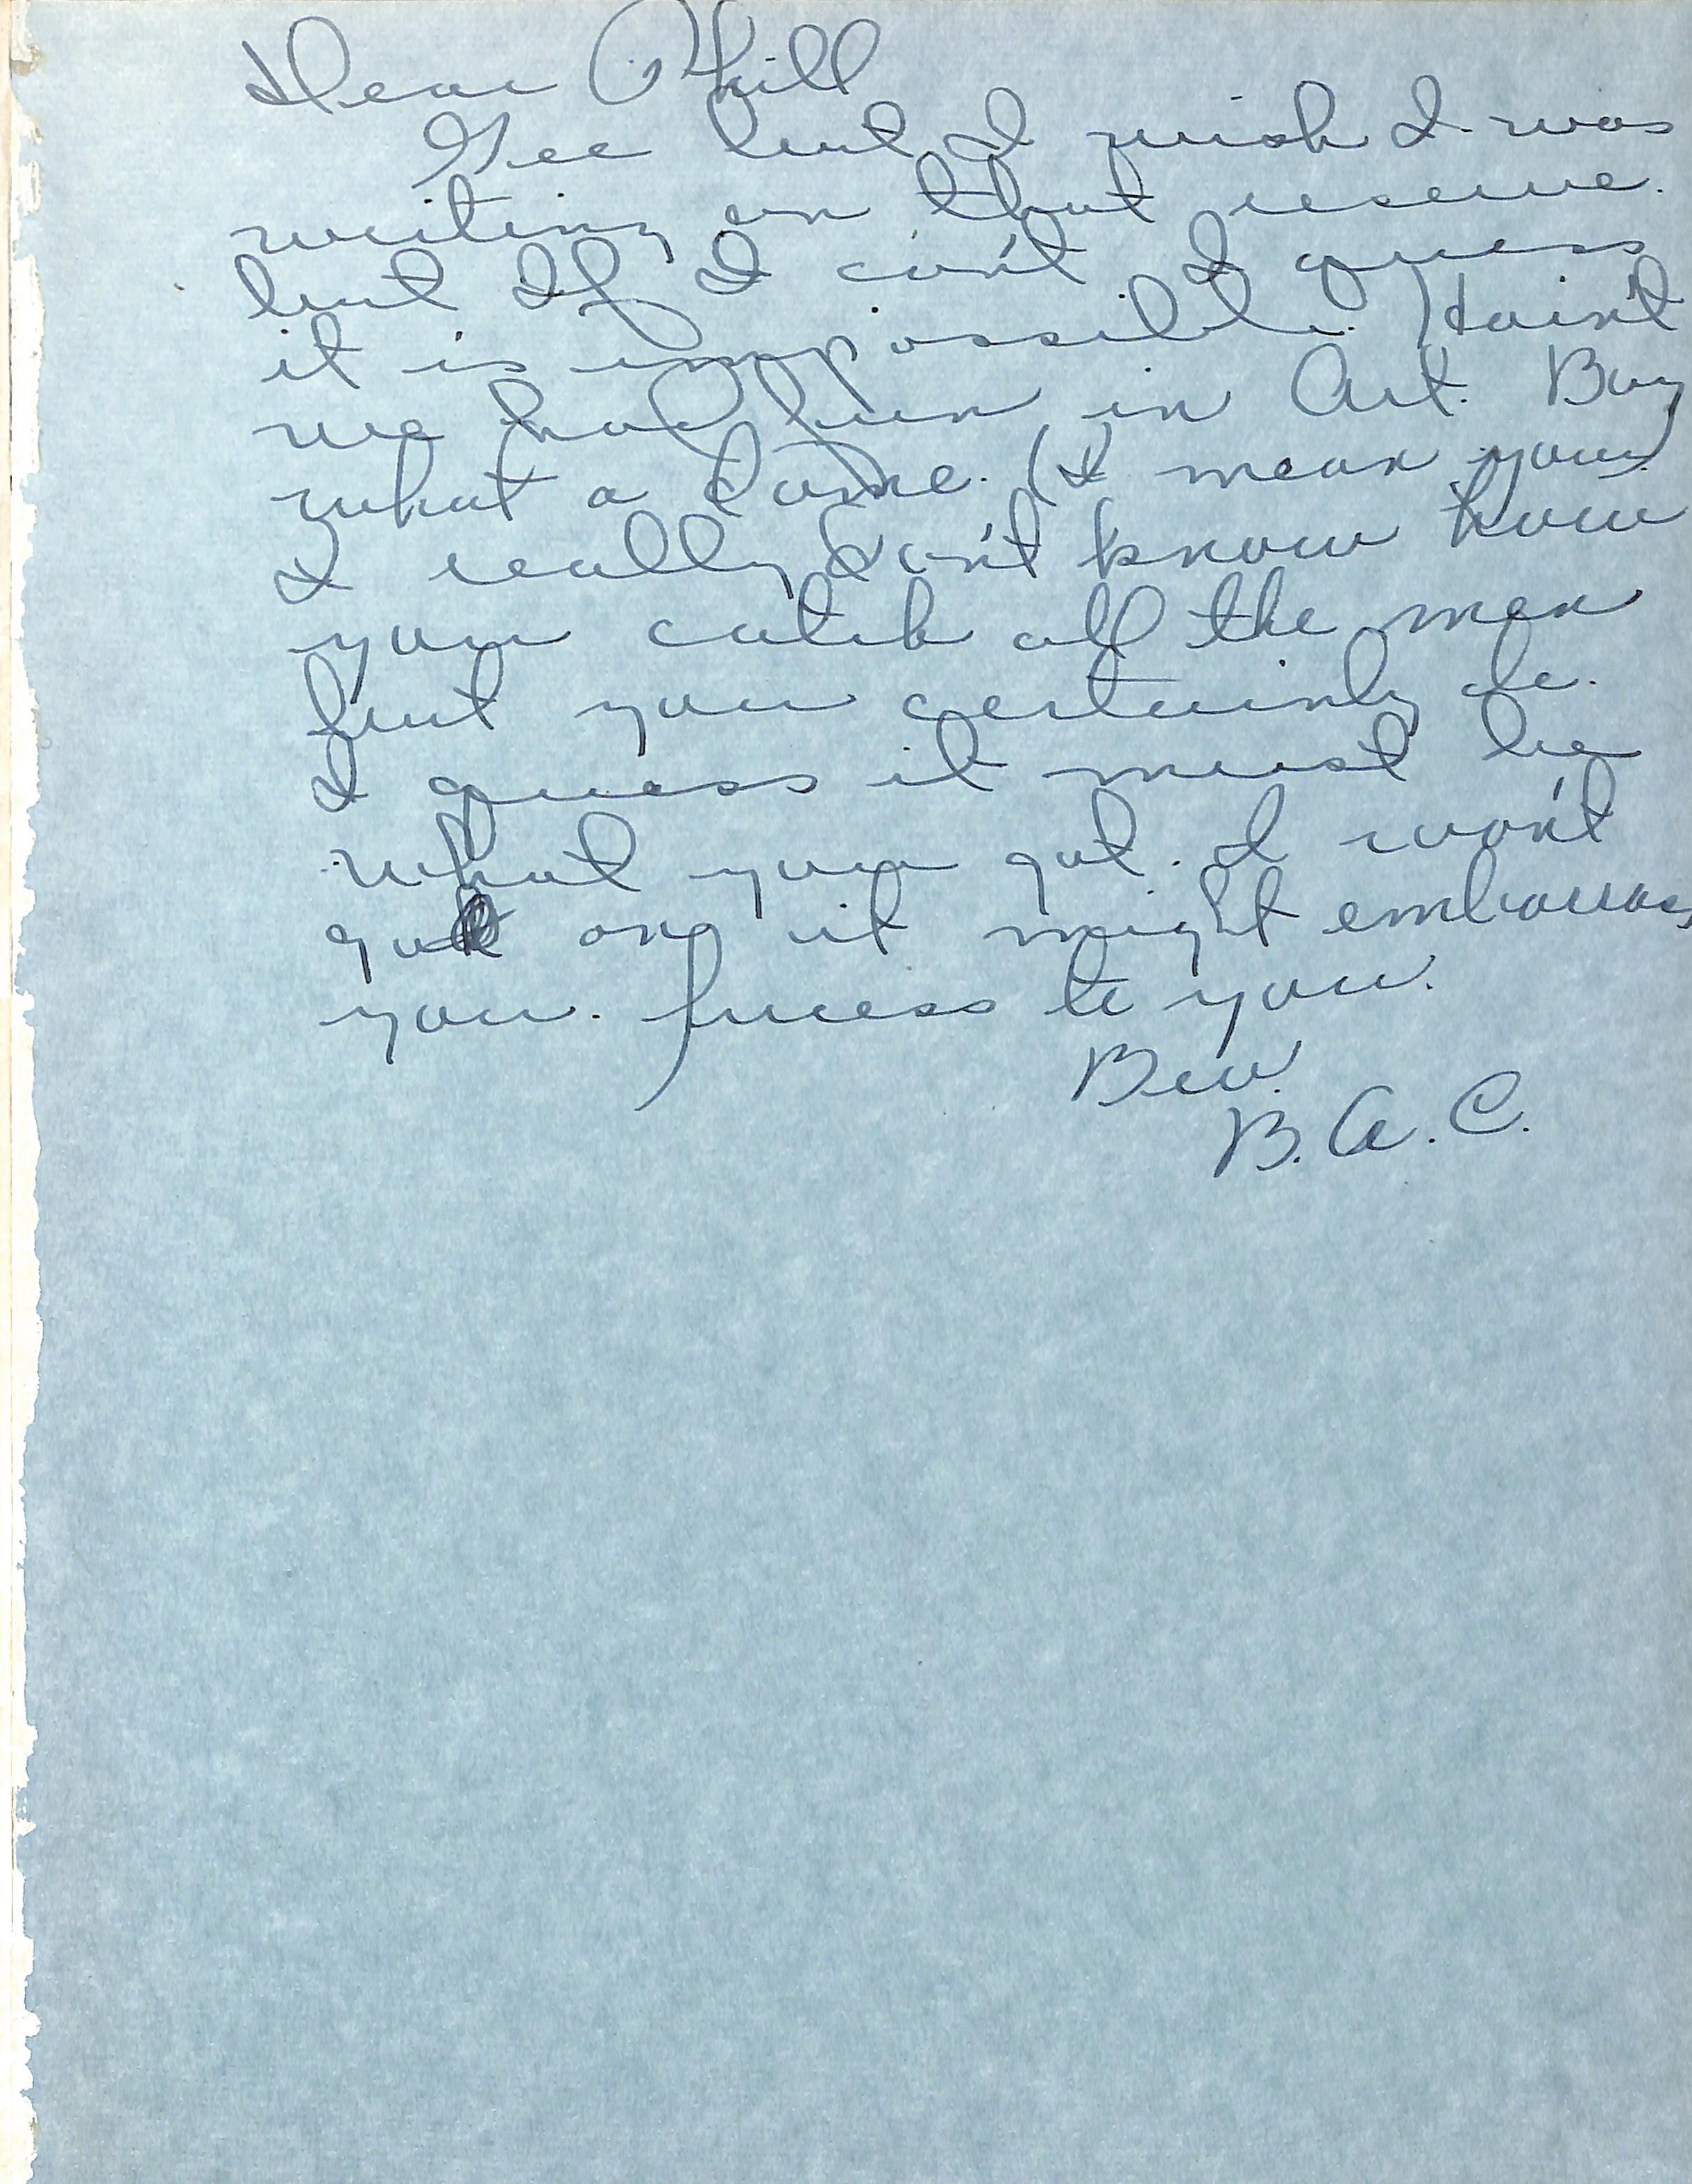 Dear Phill
Gee but I wish I was
writing on that reserve.
but If I can't I guess
it is impossible. Haint
we had fun in Art. Boy
what a dame. (I mean you)
I really don't know how
you catch all the men
but you certainly do.
I guess it must be
what you got. I won't
go on it might embarrass
you. Sucess to you.
Bev.
B.A.C.